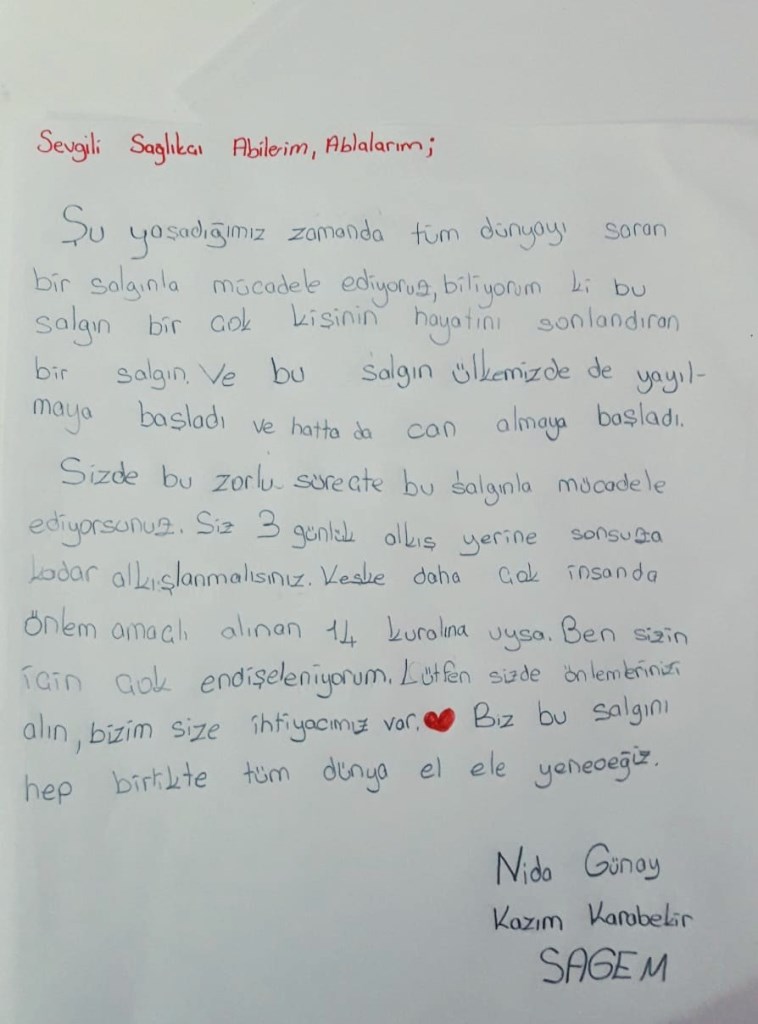 Sevgili Sağlıkcı Abilerim, Ablalarım;
Şu yaşadığımız zamanda tüm dünyayı saran
bir salgınla mücadele ediyoruz, biliyorum ki bu
salgın bir çok kişinin hayatını sonlandıran
bir salgın. Ve bu salgın ülkemizde de yayıl-
maya başladı ve hatta da can almaya başladı.
Sizde bu zorlu süreçte bu salgınla mücadele
ediyorsunuz. Siz 3 günlük alkış yerine sonsuza
kadar alkışlanmalısınız. Keske daha çok insanda
önlem amaçlı alınan 14 kuralına uysa. Ben sizin
için çok endişeleniyorum. Lütfen sizde önlemlerinizi
alın, bizim size ihtiyacımız var. ❤ Biz bu salgını
hep birlikte tüm dünya el ele yeneceğiz.
Nida Günay
Kazım Karabekir
SAGEM